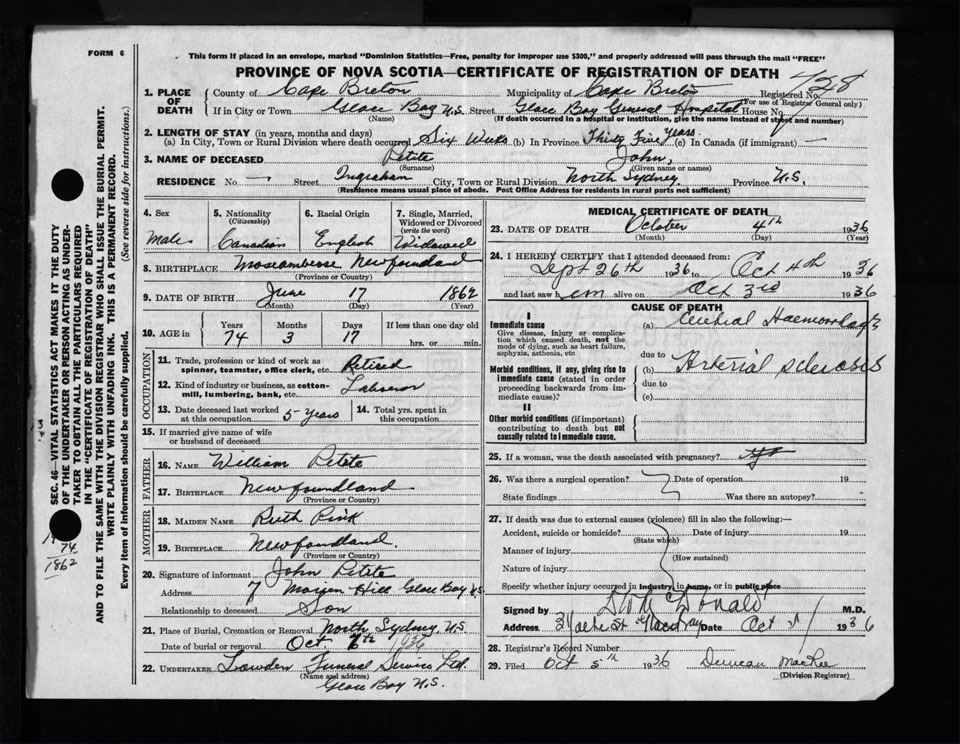 FORM 6
This form if placed in an envelope, marked "Dominion Statistics—Free, penalty for improper use $300," and properly addressed will pass through the mail "FREE"
PROVINCE OF NOVA SCOTIA—CERTIFICATE OF REGISTRATION OF DEATH
428
1. PLACE OF DEATH
County of Cape Breton Municipality of Cape Breton Registered No.
(For use of Registrar General only)
If in City or Town Glace Bay N.S. Street Glace Bay General Hospital House No.
(Name) (If death occurred in a hospital or institution, give the name instead of street and number)
2. LENGTH OF STAY (in years, months and days)
(a) In City, Town or Rural Division where death occurred Six Weeks (b) In Province Thirty Five Years. (c) In Canada (if immigrant) —
3. NAME OF DECEASED Petite John,
(Surname) (Given name or names)
RESIDENCE No. — Street Ingraham City, Town or Rural Division North Sydney. Province N.S.
(Residence means usual place of abode. Post Office Address for residents in rural parts not sufficient)
SEC. 46—VITAL STATISTICS ACT MAKES IT THE DUTY
OF THE UNDERTAKER OR PERSON ACTING AS UNDER-
TAKER TO OBTAIN ALL THE PARTICULARS REQUIRED
IN THE "CERTIFICATE OF REGISTRATION OF DEATH"
AND TO FILE THE SAME WITH THE DIVISION REGISTRAR WHO SHALL ISSUE THE BURIAL PERMIT.
WRITE PLAINLY WITH UNFADING INK. THIS IS A PERMANENT RECORD.
Every item of information should be carefully supplied. (See reverse side for instructions.)
74
1862
4. Sex
Male
5. Nationality
(Citizenship)
Canadian
6. Racial Origin
English
7. Single, Married, Widowed or Divorced
(write the word)
Widowed
8. BIRTHPLACE Newfoundland
(Province or Country)
9. DATE OF BIRTH June 17 1862
(Month) (Day) (Year)
10. AGE in Years Months Days If less than one day old
74 3 17 hrs. or min.
OCCUPATION
11. Trade, profession or kind of work as
spinner, teamster, office clerk, etc. Retired
12. Kind of industry or business, as cotton-
mill, lumbering, bank, etc. Laborer
13. Date deceased last worked
at this occupation 5 - Years
14. Total yrs. spent in
this occupation
15. If married give name of wife
or husband of deceased
FATHER
16. NAME William Petite
17. BIRTHPLACE Newfoundland
(Province or Country)
MOTHER
18. MAIDEN NAME Ruth Pink
19. BIRTHPLACE Newfoundland.
(Province or Country)
20. Signature of informant John Petite
Address 7 Hill Glace Bay N.S.
Relationship to deceased Son
21. Place of Burial, Cremation or Removal North Sydney, N.S.
Date of burial or removal Oct. 6th 1936
22. UNDERTAKER Lowden Funeral Service Ltd.
(Name and address)
Glace Bay N.S.
MEDICAL CERTIFICATE OF DEATH
23. DATE OF DEATH October 4th 1936
(Month) (Day) (Year)
24. I HEREBY CERTIFY that I attended deceased from:
Sept 26th 1936 to Oct 4th 1936
and last saw him alive on Oct 3rd 1936
CAUSE OF DEATH
I
Immediate cause
Give disease, injury or complica-
tion which caused death, not the
mode of dying, such as heart failure,
asphyxia, asthenia, etc
(a) Cerebral Haemorrhage
due to
Morbid conditions, if any, giving rise to
immediate cause (stated in order
proceeding backwards from im-
mediate cause).
(b) Arterial sclerosis
due to
(c)
II
Other morbid conditions (if important)
contributing to death but not
causally related to immediate cause.
25. If a woman, was the death associated with pregnancy?
26. Was there a surgical operation? Date of operation 19
State findings Was there an autopsy?
27. If death was due to external causes (violence) fill in also the following:—
Accident, suicide or homicide? Date of injury 19
(State which)
Manner of injury
(How sustained)
Nature of injury
Specify whether injury occurred in industry, in home, or in public place
Signed by Donald M.D.
Address Date Oct 1936
28. Registrar's Record Number
29. Filed Oct 5th 1936 Duncan MacRae
(Division Registrar)